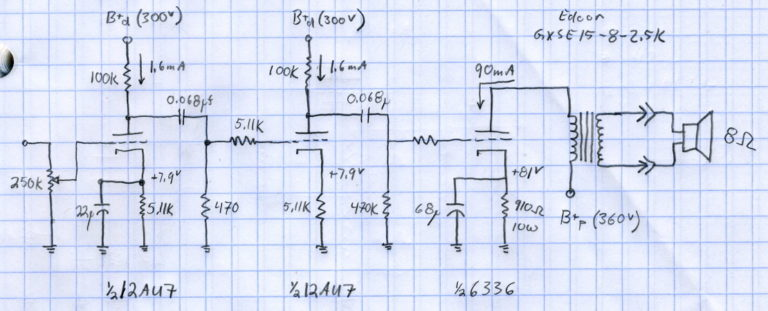 B+d (300v)
B+d (300v)
Edcor
GXSE15-8-2.5K
100K
1.6mA
100K
1.6mA
90mA
0.068μf
0.068μ
5.11K
8Ω
250K
+7.9v
+7.9v
+81v
22μ
5.11K
470
5.11K
470K
68μ
910Ω
10W
B+p (360v)
½12AU7
½12AU7
½6336